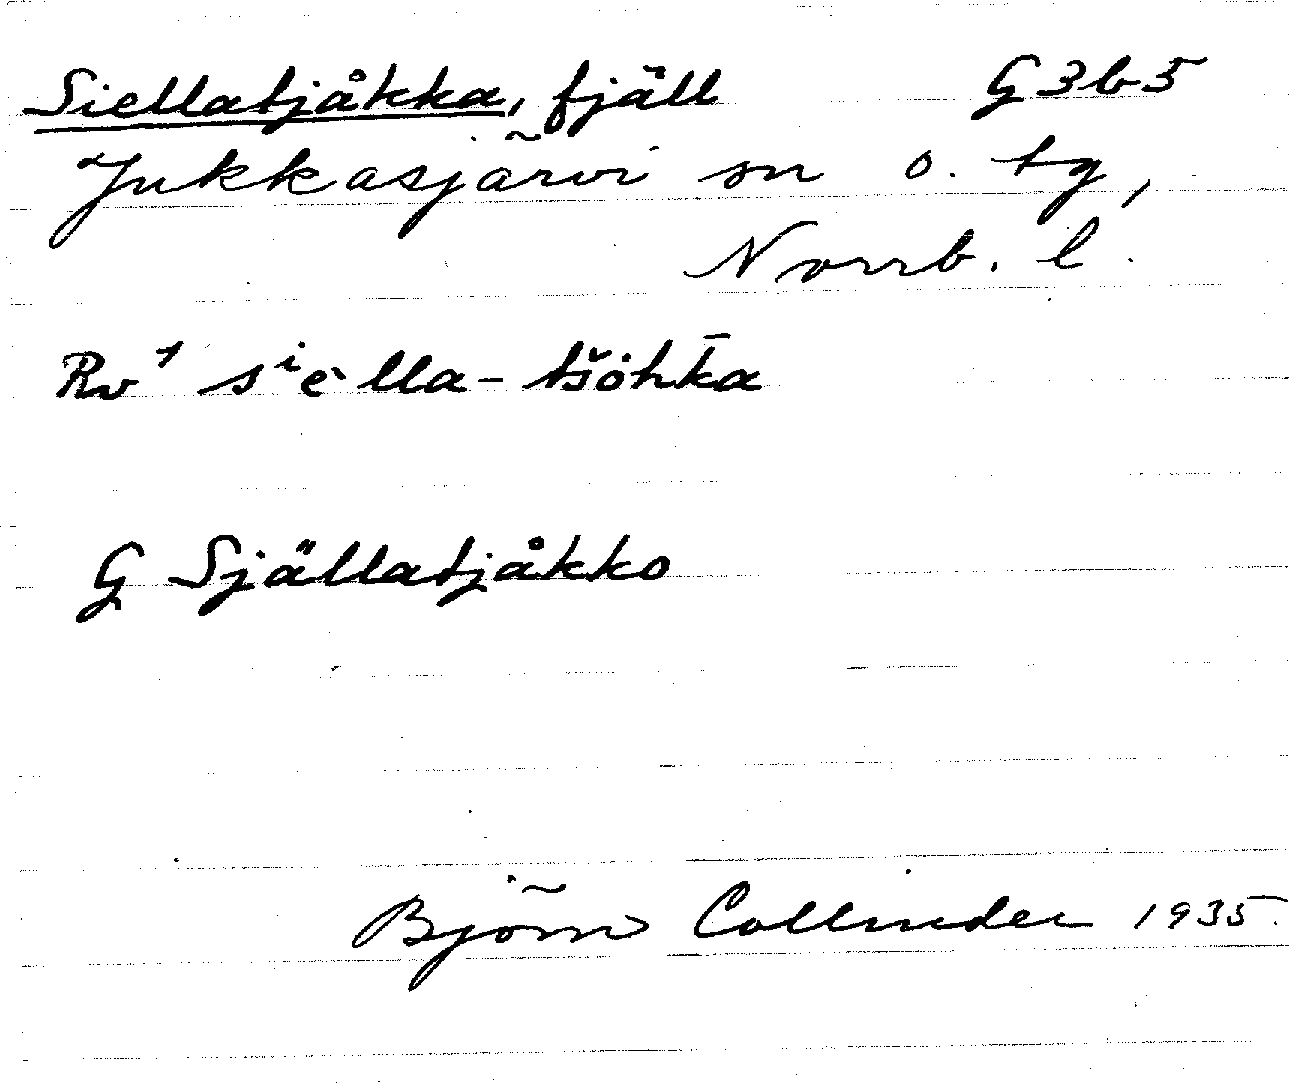 Siellatjåkka, fjäll G3b5
Jukkasjärvi sn o. tg,
Norrb. l.
Rv¹ sⁱe̮lla-tšȯhk̄a
G Själlatjåkko
Björn Collinder 1935.